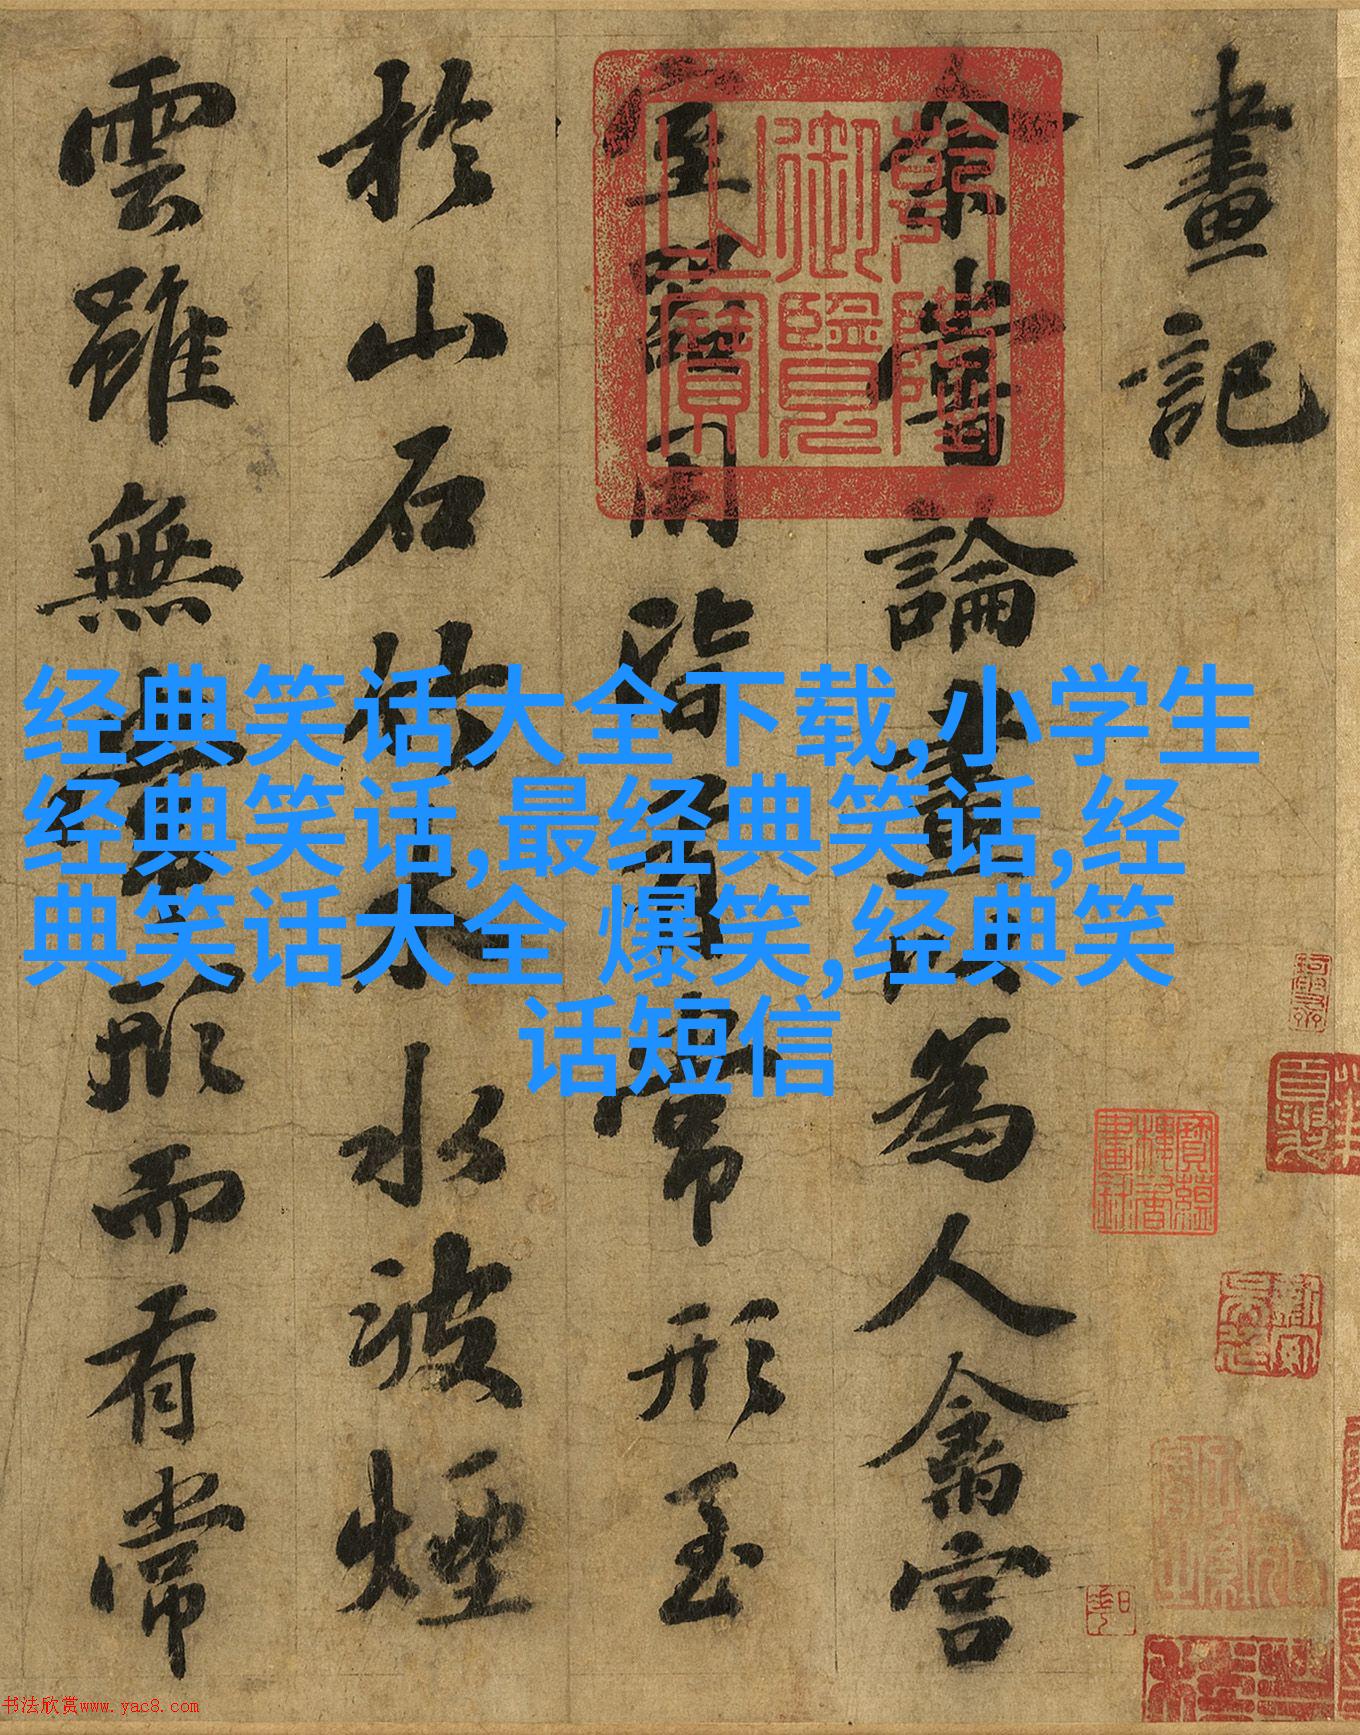 畫記
余嘗論畫以為人禽宮
室器用皆有常形至
於山石竹木水波煙
雲雖無常形而有常
乾隆御覽之寶
经典笑话大全下载,小学生
经典笑话,最经典笑话,经
典笑话大全 爆笑,经典笑
话短信
书法欣赏www.yac8.com